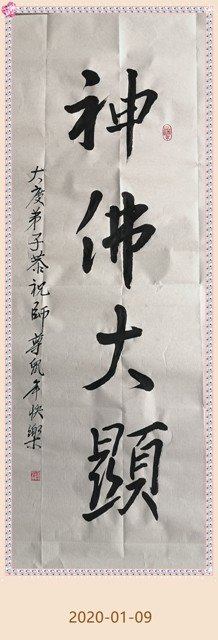 神佛大顯
大慶弟子恭祝師尊鼠年快樂
2020-01-09